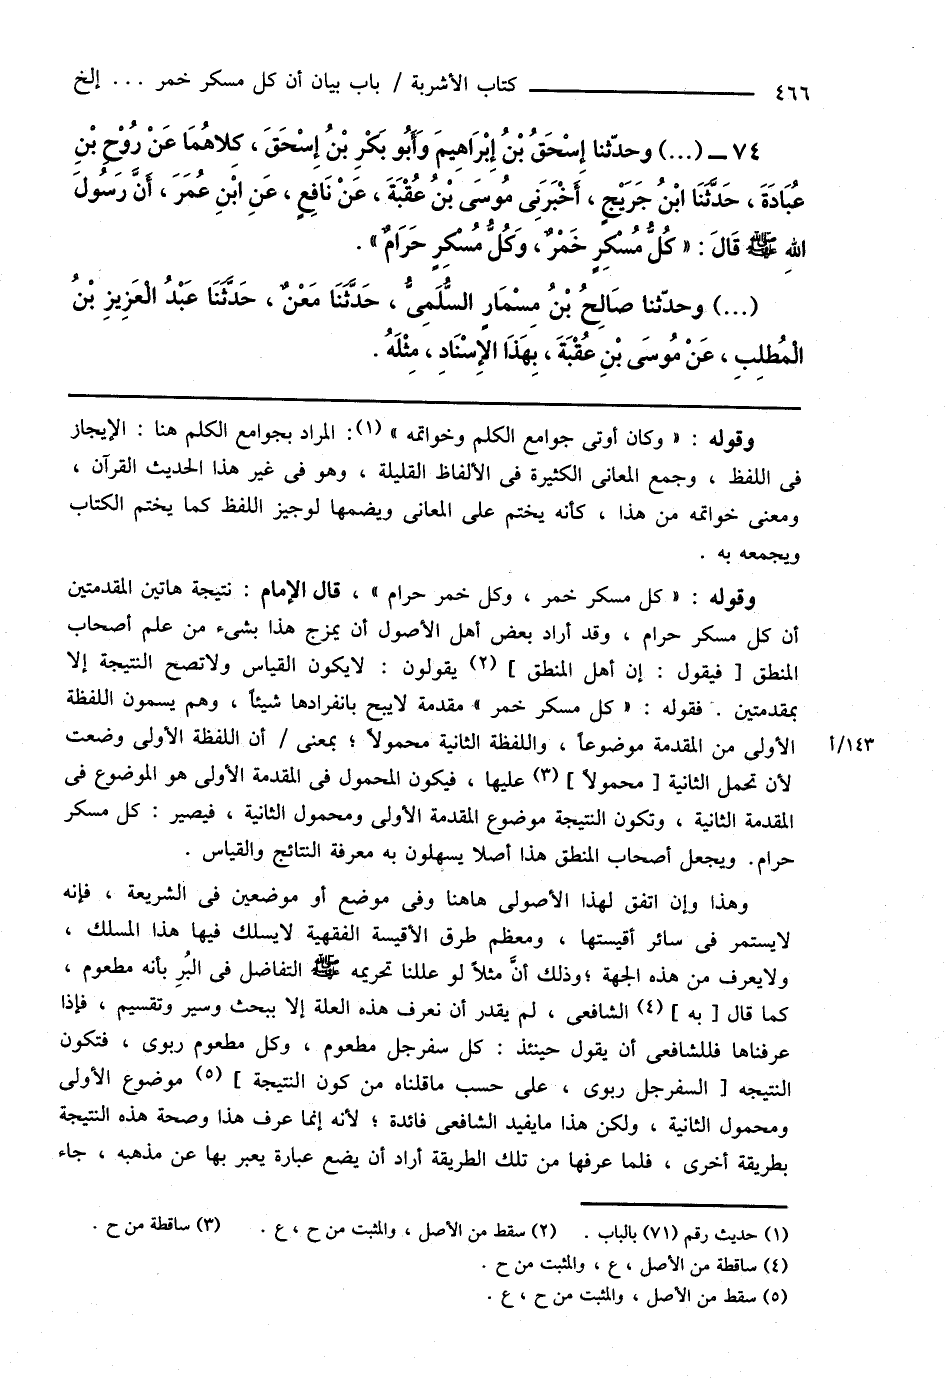 ٤٦٦ كتاب الأشربة / باب بيان أن كل مسكر خمر ... إلخ
٧٤ ــ (...) وحدّثنا إِسْحَقُ بْنُ إِبْرَاهِيمَ وَأَبُو بَكْرِ بْنُ إِسْحَقَ ، كلاهُمَا عَنْ رَوْحِ بْنِ
عُبَادَةَ ، حَدَّثَنَا ابْنُ جَرَيْجٍ ، أَخْبَرَنِى مُوسَى بْنُ عُقْبَةَ ، عَنْ نَافِعٍ ، عَنِ ابْنِ عُمَرَ ، أَنَّ رَسُولَ
اللهِ ﷺ قَالَ : « كُلُّ مُسْكِرٍ خَمْرٌ ، وَكُلُّ مُسْكِرٍ حَرَامٌ » .
(...) وحدّثنا صَالِحُ بْنُ مِسْمَارٍ السُّلَمِىُّ ، حَدَّثَنَا مَعْنٌ ، حَدَّثَنَا عَبْدُ الْعَزِيزِ بْنُ
الْمُطلِبِ ، عَنْ مُوسَى بْنِ عُقْبَةَ ، بِهَذَا الإِسْنَادِ ، مِثْلَهُ .
وقوله : « وكان أوتى جوامع الكلم وخواتمه » (١): المراد بجوامع الكلم هنا : الإيجاز
فى اللفظ ، وجمع المعانى الكثيرة فى الألفاظ القليلة ، وهو فى غير هذا الحديث القرآن ،
ومعنى خواتمه من هذا ، كأنه يختم على المعانى ويضمها لوجيز اللفظ كما يختم الكتاب
ويجمعه به .
وقوله : « كل مسكر خمر ، وكل خمر حرام » ، قال الإمام : نتيجة هاتين المقدمتين
أن كل مسكر حرام ، وقد أراد بعض أهل الأصول أن يمزج هذا بشىء من علم أصحاب
المنطق [ فيقول : إن أهل المنطق ] (٢) يقولون : لايكون القياس ولاتصح النتيجة إلا
بمقدمتين . فقوله : « كل مسكر خمر » مقدمة لايبح بانفرادها شيئاً ، وهم يسمون اللفظة
الأولى من المقدمة موضوعاً ، واللفظة الثانية محمولاً ؛ بمعنى / أن اللفظة الأولى وضعت ١٤٣/أ
لأن تحمل الثانية [ محمولاً ] (٣) عليها ، فيكون المحمول فى المقدمة الأولى هو الموضوع فى
المقدمة الثانية ، وتكون النتيجة موضوع المقدمة الأولى ومحمول الثانية ، فيصير : كل مسكر
حرام. ويجعل أصحاب المنطق هذا أصلا يسهلون به معرفة النتائج والقياس .
وهذا وإن اتفق لهذا الأصولى هاهنا وفى موضع أو موضعين فى الشريعة ، فإنه
لايستمر فى سائر أقيستها ، ومعظم طرق الأقيسة الفقهية لايسلك فيها هذا المسلك ،
ولايعرف من هذه الجهة ؛وذلك أنَّ مثلاً لو عللنا تحريمه ﷺ التفاضل فى البُرِ بأنه مطعوم ،
كما قال [ به ] (٤) الشافعى ، لم يقدر أن نعرف هذه العلة إلا ببحث وسير وتقسيم ، فإذا
عرفناها فللشافعى أن يقول حينئذ : كل سفرجل مطعوم ، وكل مطعوم ربوى ، فتكون
النتيجه [ السفرجل ربوى ، على حسب ماقلناه من كون النتيجة ] (٥) موضوع الأولى
ومحمول الثانية ، ولكن هذا مايفيد الشافعى فائدة ؛ لأنه إنما عرف هذا وصحة هذه النتيجة
بطريقة أخرى ، فلما عرفها من تلك الطريقة أراد أن يضع عبارة يعبر بها عن مذهبه ، جاء
(١) حديث رقم (٧١) بالباب . (٢) سقط من الأصل ، والمثبت من ح ، ع . (٣) ساقطة من ح .
(٤) ساقطة من الأصل ، ع ، والمثبت من ح .
(٥) سقط من الأصل ، والمثبت من ح ، ع .